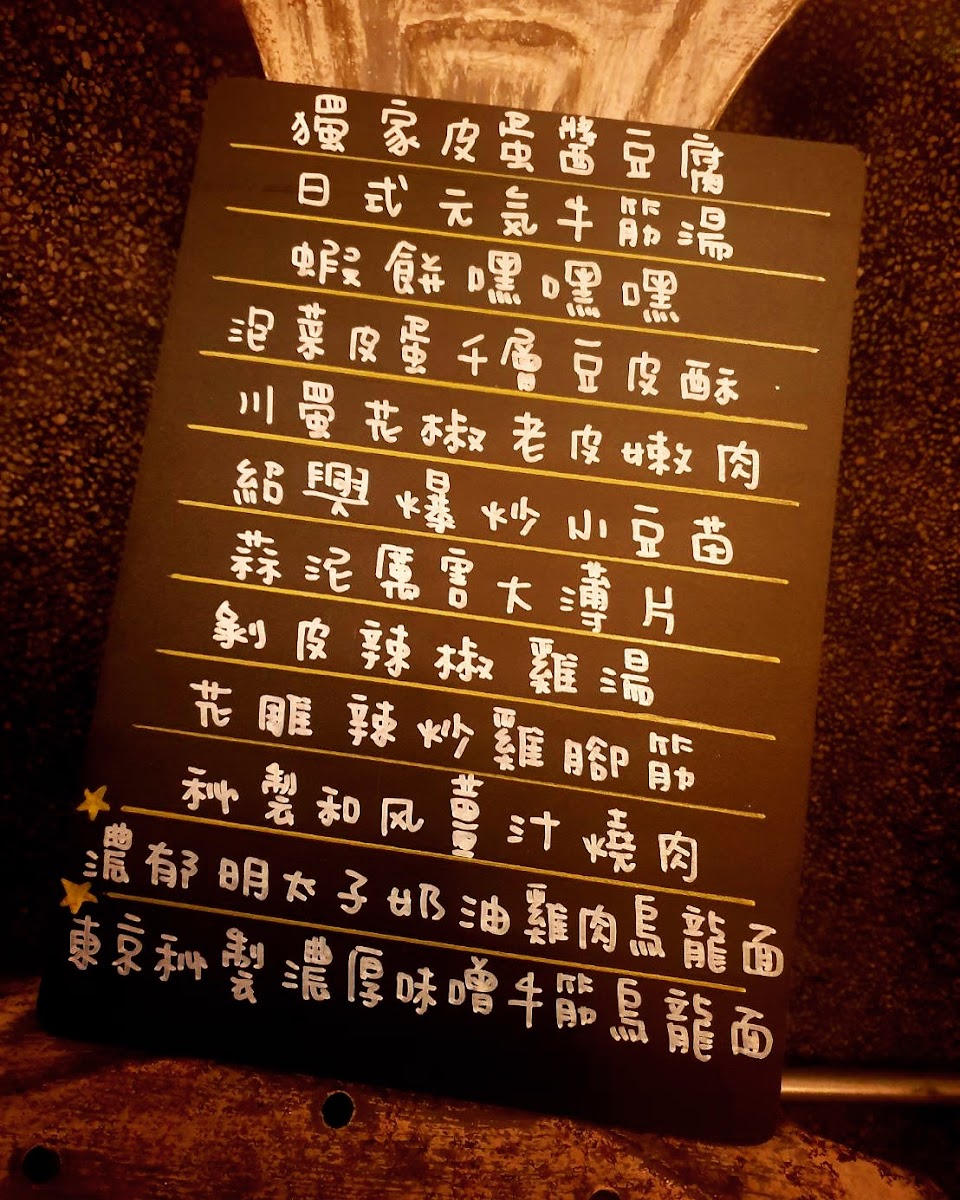 獨家皮蛋醬豆腐
日式元氣牛筋湯
蝦餅嘿嘿嘿
泡菜皮蛋千層豆皮酥
川蜀花椒老皮嫩肉
紹興爆炒小豆苗
蒜泥厲害大薄片
剝皮辣椒雞湯
花雕辣炒雞腳筋
秘製和风薑汁燒肉
濃郁明太子奶油雞肉烏龍面
東京秘製濃厚味噌牛筋烏龍面